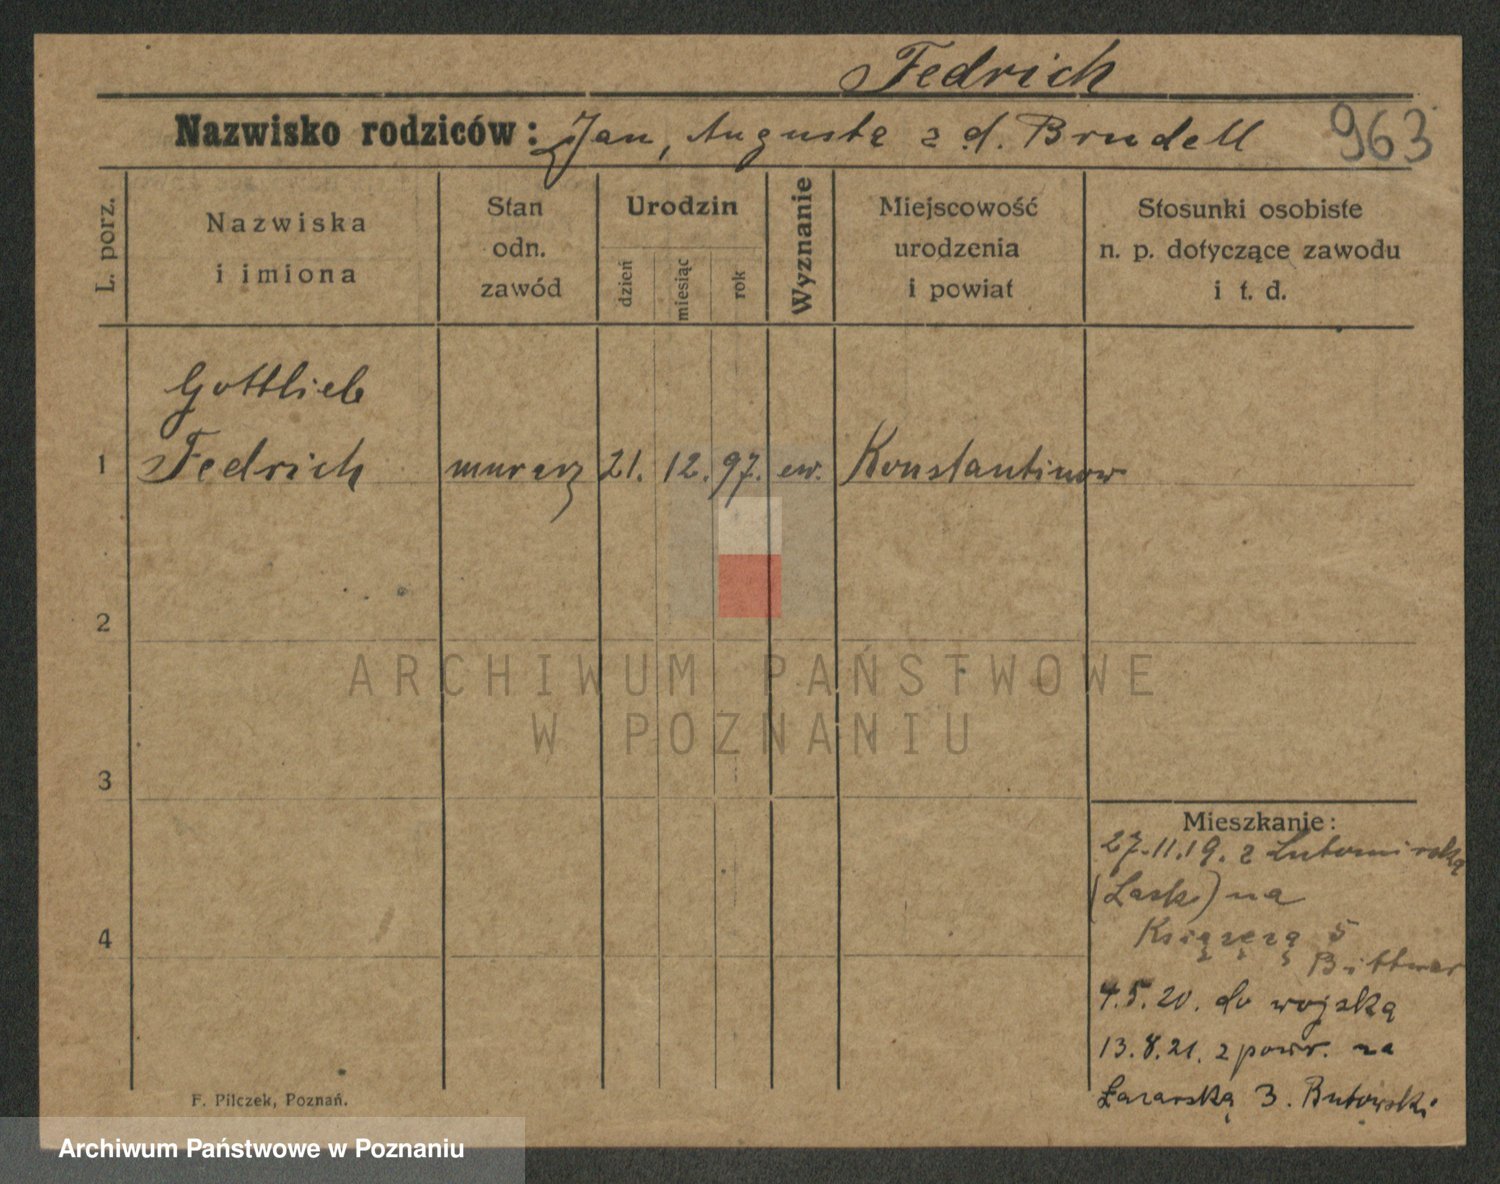 Fedrich
Nazwisko rodziców: Jan, Augusta z d. Brudell 963
L. porz.
Nazwiska
i imiona
Stan
odn.
zawód
Urodzin
dzień
miesiąc
rok
Wyznanie
Miejscowość
urodzenia
i powiat
Stosunki osobiste
n. p. dotyczące zawodu
i t. d.
Gottlieb
1 Fedrich murarz 21. 12. 97. ew. Konstantinow
2
ARCHIWUM PAŃSTWOWE
W POZNANIU
3
Mieszkanie:
27.11.19. z
(Lask) na
4
Książęcą 5
4.5.20. do wojska
13.8.21. z powr. na
Łazarską 3. Butowski
F. Pilczek, Poznań.
Archiwum Państwowe w Poznaniu